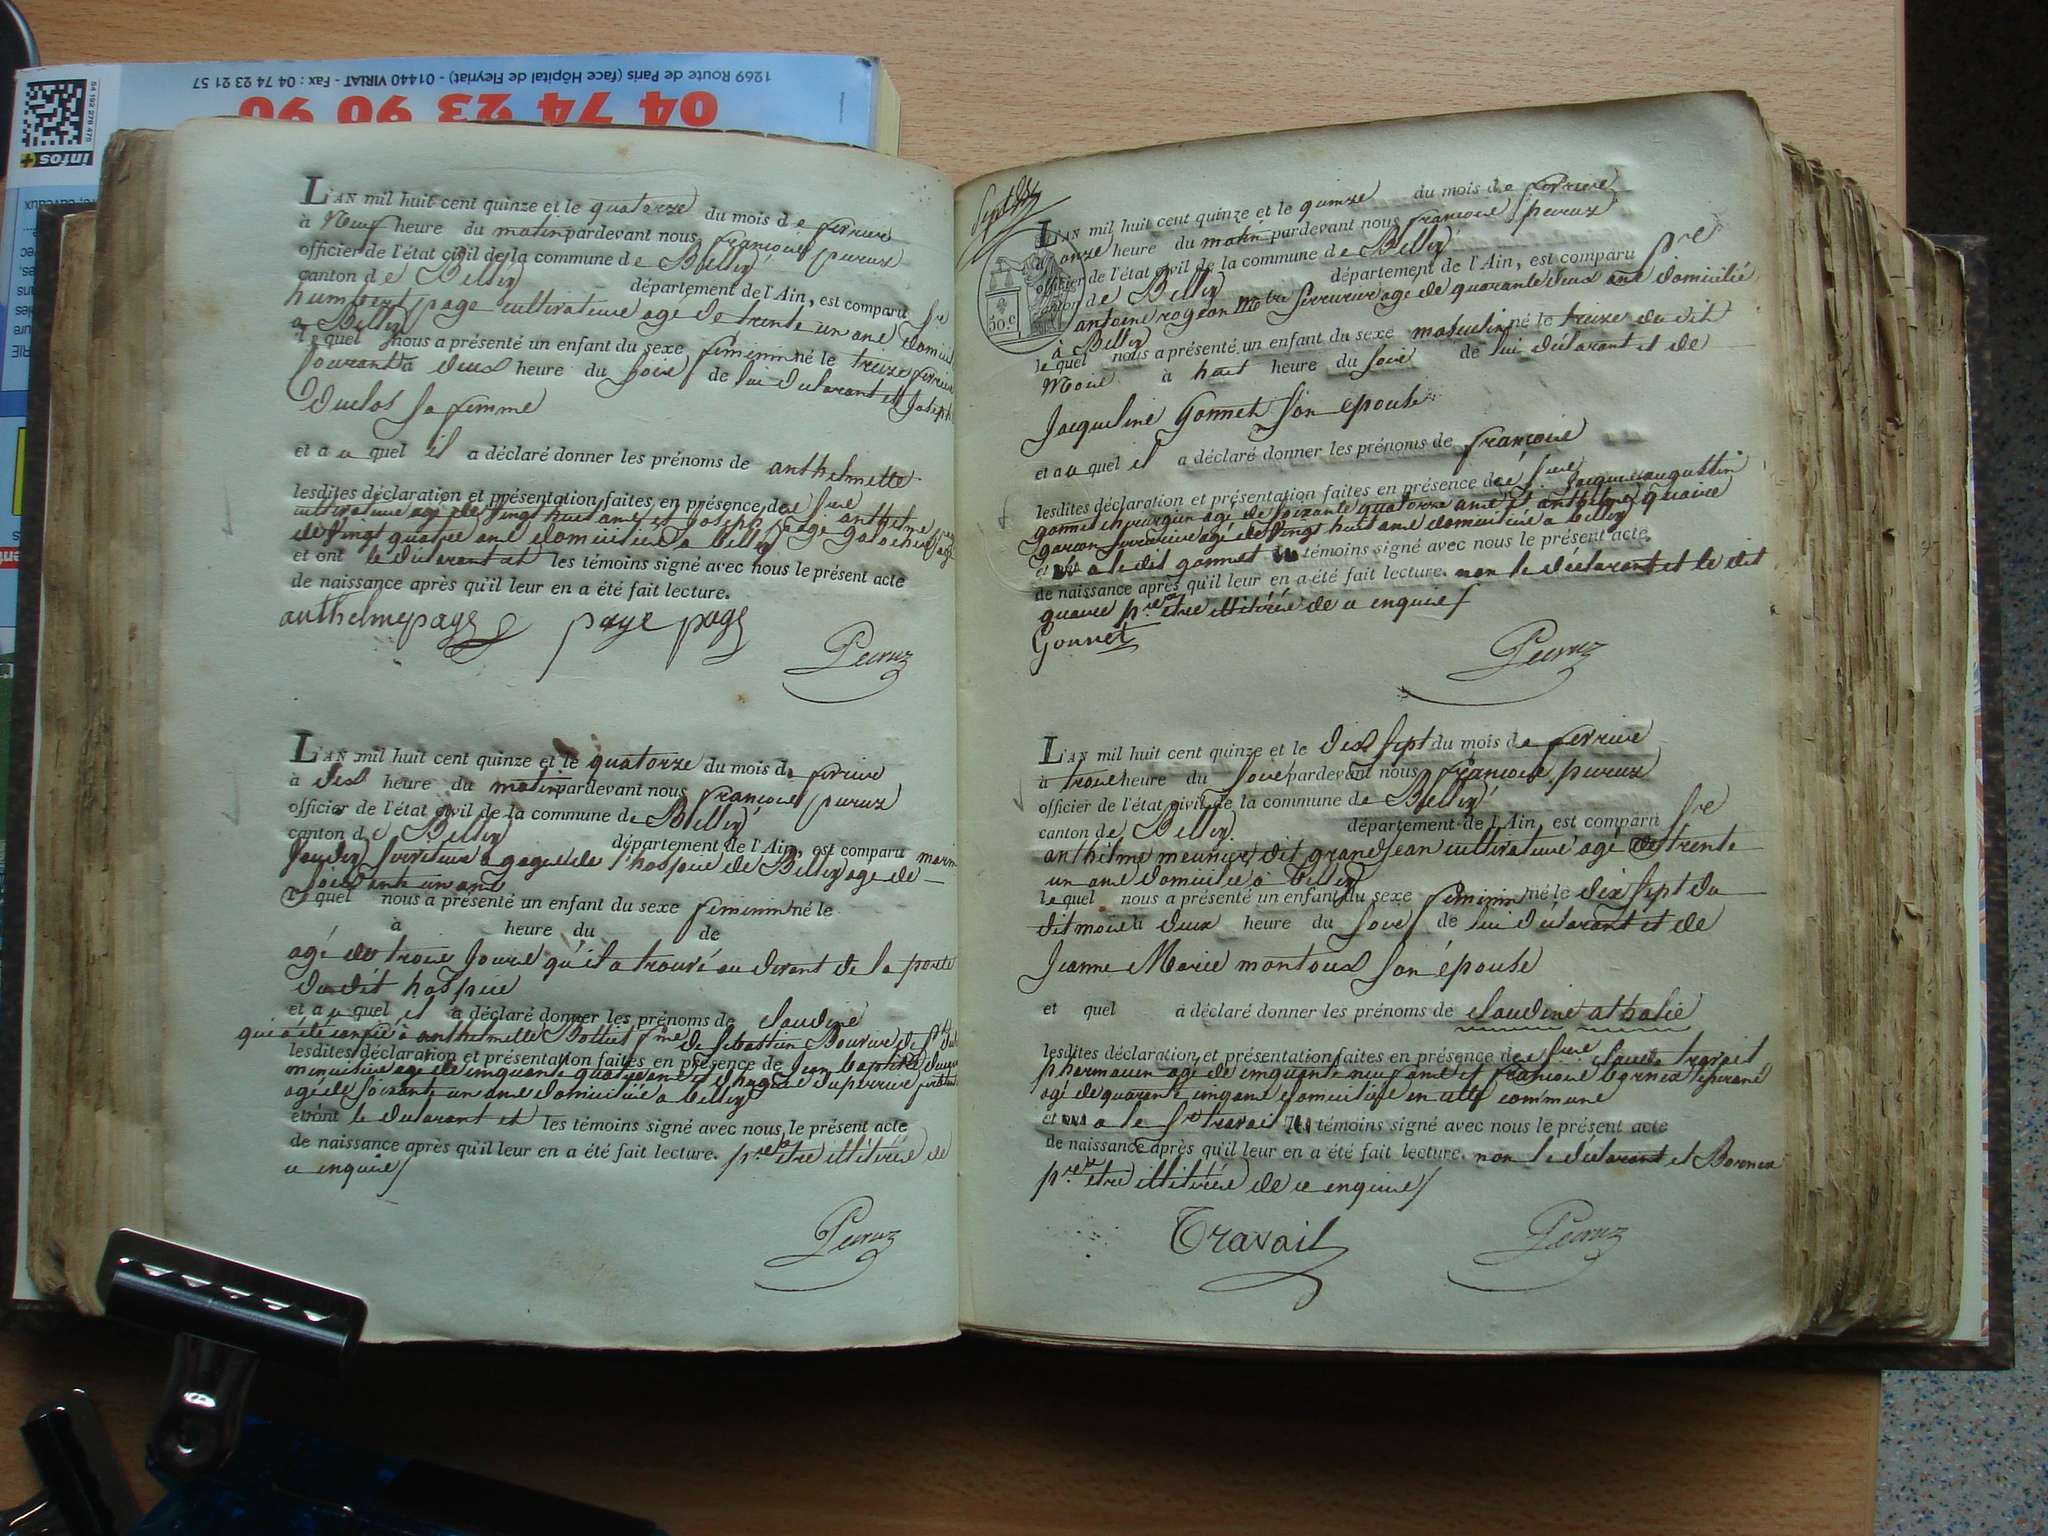 1269 Route de Paris (face Hôpital de Fleyriat) - 01440 VIRIAT - Fax : 04 74 23 21 57
04 74 23 90 90
infos+
L'AN mil huit cent quinze et le quatorze du mois de fevrier
à Neuf heure du matin pardevant nous françois peruz
officier de l'état civil de la commune de Belley
canton de Belley département de l'Ain, est comparu Sre
humbert page cultivateur agé de trente un ans domicilié
a Belley
lequel nous a présenté un enfant du sexe féminin né le treize fevrier
courant à deux heure du soir de lui déclarant et Joseph
duclos sa femme
et au quel il a déclaré donner les prénoms de anthelmette
lesdites déclaration et présentation faites en présence de Sieur anthelme page
cultivateur agé de vingt huit ans et joseph page
de vingt quatre ans domiciliés a belley
et ont le déclarant et les témoins signé avec nous le présent acte
de naissance après qu'il leur en a été fait lecture.
anthelme page page page
Peruz
L'AN mil huit cent quinze et le quatorze du mois de fevrier
à dix heure du matin pardevant nous françois peruz
officier de l'état civil de la commune de Belley
canton de Belley département de l'Ain, est comparu
serviteur a gage de l'hospice de Belley agé de
soixante un ans
lequel nous a présenté un enfant du sexe féminin né le
à heure du de
agé de trois jours qu'il a trouvé au devant de la porte
du dit hospice
et au quel il a déclaré donner les prénoms de claudine
qui a été confié à anthelmette Bottet fme de Sebastien
lesdites déclaration et présentation faites en présence de Jean baptiste
menuisier agé de cinquante quatre ans et
agé de soixante un ans domicilié a belley
et ont le déclarant et les témoins signé avec nous le présent acte
de naissance après qu'il leur en a été fait lecture. pre être illitérés de
ce enquis
Peruz
L'AN mil huit cent quinze et le quinze du mois de fevrier
à onze heure du matin pardevant nous françois peruz
officier de l'état civil de la commune de Belley
canton de Belley département de l'Ain, est comparu Sre
50.c
antoine rogeon Mtre serrurier agé de quarante deux ans domicilié
à Belley
lequel nous a présenté un enfant du sexe masculin né le treize du dit
Mois à huit heure du soir de lui déclarant et de
Jacqueline Gonnet son epouse
et au quel il a déclaré donner les prénoms de françois
lesdites déclaration et présentation faites en présence de Sieur Jacques augustin
gonnet chirurgien agé de soixante quatorze ans et anthelme quaire
garçon serrurier agé de vingt huit ans domiciliés a belley
et a le dit gonnet témoins signé avec nous le présent acte,
de naissance après qu'il leur en a été fait lecture. non le déclarant et le dit
quaire pre être illitérés de ce enquis
Gonnet
Peruz
L'AN mil huit cent quinze et le dix sept du mois de fevrier
à trois heure du soir pardevant nous françois peruz
officier de l'état civil de la commune de Belley
canton de Belley département de l'Ain, est comparu Sre
anthelme meunier dit grand jean cultivateur agé de trente
un ans domicilié à belley
lequel nous a présenté un enfant du sexe féminin né le dix sept du
dit mois à deux heure du soir de lui déclarant et de
Jeanne Marie montoux son épouse
et quel a déclaré donner les prénoms de claudine athalie
lesdites déclaration et présentation faites en présence de Sieur Claude travail
pharmacien agé de cinquante neuf ans et françois bornex
agé de quarante cinq ans domiciliés en cette commune
et a le Sr travail témoins signé avec nous le présent acte
de naissance après qu'il leur en a été fait lecture. non le déclarant et Bornex
pre être illitérés de ce enquis
Travail
Peruz